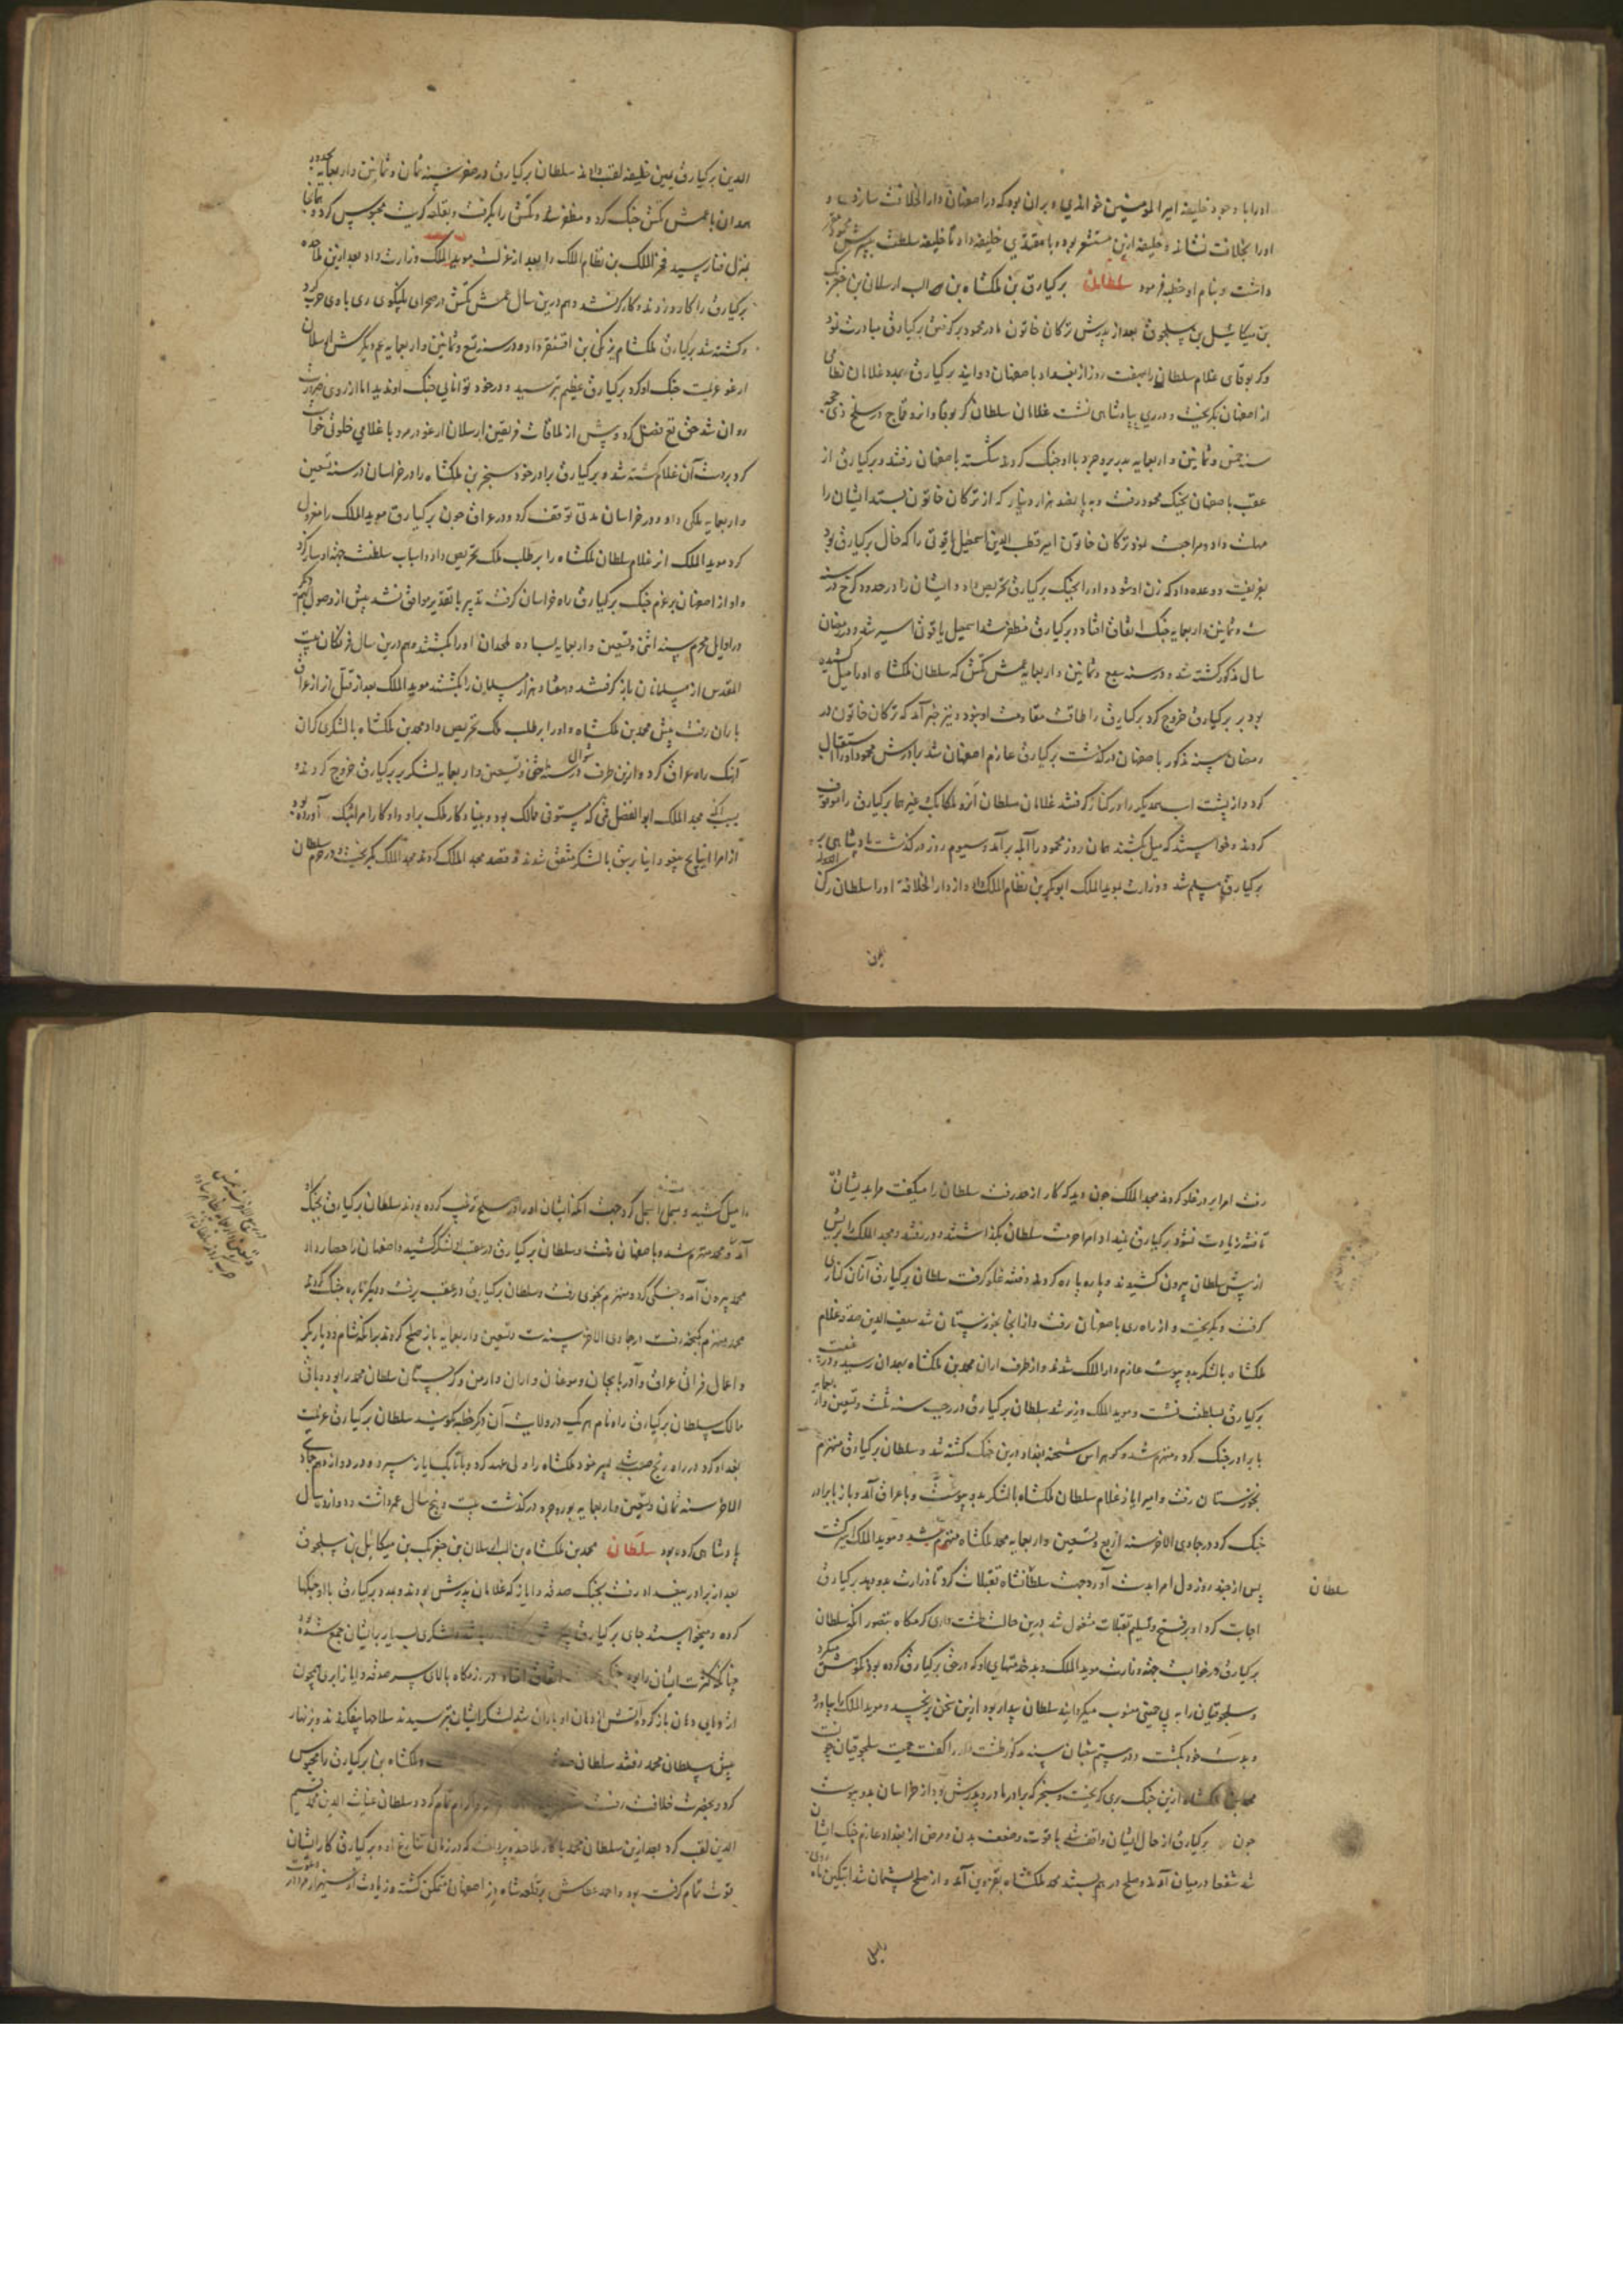 او را با وجود خلیفه امیر المومنین خواندی و بران بود که در اصفهان دار الخلافت سازد و
او را بخلافت نشاند و خلیفه ازین مستشعر بوده با مقتدی خلیفه داد تا خلیفه سلطنت به پسرش محمود مقرر
داشت و بنام او خطبه فرمود سلطان برکیارق بن ملکشاه بن الب ارسلان بن جغربک
بن میکائیل بن سلجوق بعد از پدرش ترکان خاتون مادر محمود بر گرفتن برکیارق مبادرت نمود
و کربوقای غلام سلطان را بهفت روز از بغداد باصفهان دوانید برکیارق بمدد غلامان نظامی
از اصفهان بگریخت و در ری بپادشاهی نشست غلامان سلطان کربوقا و انر و قماج در سلخ ذی حجه
سنه خمس و ثمانین و اربعمایه بدر بروجرد با او جنگ کردند شکسته باصفهان رفتند و برکیارق از
عقب باصفهان بجنگ محمود رفت و به پانصد هزار دینار که از ترکان خاتون بستد ایشان را
مهلت داد و مراجعت نمود ترکان خاتون امیر قطب الدین اسمعیل یاقوتی را که خال برکیارق بود
بفریفت و وعده داد که زن او شود و او را بجنگ برکیارق تحریض داد و ایشان را در حدود کرج در سنه
ست و ثمانین و اربعمایه جنگ اتفاق افتاد و برکیارق مظفر شد اسمعیل یاقوتی اسیر شد و در رمضان
سال مذکور کشته شد و در سنه سبع و ثمانین و اربعمایه عمش تکش که سلطان ملکشاه او را میل کشیده
بود بر برکیارق خروج کرد برکیارق را طاقت مقاومت او نبود و نیز خبر آمد که ترکان خاتون در
رمضان سنه مذکور باصفهان درگذشت برکیارق عازم اصفهان شد برادرش محمود او را استقبال
کرد و از پشت اسب همدیگر را در کنار گرفتند غلامان سلطان انر و بلکابک غیرهما برکیارق را موقوف
کردند و خواستند که میل کشند همان روز محمود را آبله برآمد و سیوم روز درگذشت پادشاهی بر
برکیارق مسلم شد و وزارت بموید الملک ابوبکر بن نظام الملک داد و از دار الخلافة او را سلطان رکن الدوله
یمین
الدین برکیارق یمین خلیفه لقب دادند سلطان برکیارق در صفر سنه ثمان و ثمانین و اربعمایه بحدود
همدان با عمش تکش جنگ کرد و مظفر شد و تکش را بگرفت و بقلعه تکریت محبوس کرد و همانجا
بمنزل فنا رسید فخر الملک بن نظام الملک را بعد از عزلت موید الملک وزارت داد بعد ازین ملاحده
برکیارق را کارد زدند و کارگر نشد و هم درین سال عمش تتش در صحرای ری با وی حرب کرد
و کشته شد برکیارق ملک شام بزنگی بن اقسنقر داد و در سنه تسع و ثمانین و اربعمایه عم دیگرش ارسلان
ارغو عزیمت جنگ او کرد برکیارق عظیم بترسید و در خود توانایی جنگ او ندید اما از روی ضرورت
روان شد حق تع فضل کرد و پیش از ملاقات فریقین ارسلان ارغو در مرو با غلامی خلوتی خواست
کرد بر دست آن غلام کشته شد و برکیارق برادر خود سنجر بن ملکشاه را در خراسان در سنه تسعین
و اربعمایه ملکی داد و در خراسان مدتی توقف کرد و در عراق چون برکیارق موید الملک را معزول
کرد موید الملک انر غلام سلطان ملکشاه را بر طلب ملک تحریض داد و اسباب سلطنت جهت او ساز کرد
و او از اصفهان بر عزم جنگ برکیارق راه خراسان گرفت تدبیر با تقدیر موافق نشد پیش از وصول بهم
در اوایل محرم سنه اثنی و تسعین و اربعمایه بساوه ملحدان او را بکشتند و هم درین سال فرنگان بیت
المقدس از مسلمانان باز گرفتند و هفتاد هزار مسلمان را بکشتند موید الملک بعد از قتل انر از عراق
باران رفت پیش محمد بن ملکشاه و او را بر طلب ملک تحریض داد محمد بن ملکشاه با لشکری گران
آهنگ راه عراق کرد و ازین طرف در شوال سنه اثنی و تسعین و اربعمایه لشکر بر برکیارق خروج کردند
بسبب آنکه مجد الملک ابوالفضل قمی که مستوفی ممالک بود و بنیاد کار ملک براو داد کار امرا تنگ آورده بود
از امرا اینانج بیغو و ابنا برسق با لشکر متفق شدند و قصد مجد الملک کردند مجد الملک بگریخت و در حرم سلطان
رفت امرا بر در غلو کردند مجد الملک چون دید که کار از حد رفت سلطان را میگفت مرا بدیشان ده
تا فتنه زیادت نشود برکیارق نمیداد امرا حرمت سلطان بگذاشتند و در رفتند و مجد الملک را بریش
از پیش سلطان بیرون کشیدند و پاره پاره کردند و فتنه غلو گرفت سلطان برکیارق از آن کناری
گرفت و بگریخت و از راه ری باصفهان رفت و از آنجا بخوزستان شد سیف الدین صدقه غلام
ملکشاه با لشکر بدو پیوست عازم دار الملک شدند و از طرف اران محمد بن ملکشاه بهمدان رسید و در غیبت
برکیارق بسلطنت نشست و موید الملک وزیر شد سلطان برکیارق در رجب سنه ثلث و تسعین و اربعمایه
با برادر جنگ کرد و منهزم شد و گوهراین شحنه بغداد درین جنگ کشته شد و سلطان برکیارق منهزم
بخوزستان رفت و امیر ایاز غلام سلطان ملکشاه با لشکر بدو پیوست و با عراق آمد و باز با برادر
جنگ کرد در جمادی الاخر سنه اربع و تسعین و اربعمایه محمد ملکشاه منهزم شد و موید الملک اسیر گشت
پس از چند روز دل امرا بدست آورد و جهت سلطان شاه تقبلات کرد تا وزارت بدو دهد برکیارق
سلطان
اجابت کرد او بر فسح و تسلیم تقبلات مشغول شد درین حالت طشت داری گرمگاه بتصور آنکه سلطان
برکیارق در خوابست جهت وزارت موید الملک و بدخدمتیهای او که در حق برکیارق کرده بود نکوهش میکرد
و سلجوقیان را به بی حمیتی منسوب میگردانید سلطان بیدار بود ازین سخن برنجید و موید الملک را بیاورد
و بدست خود بکشت و در ستم شعبان سنه مذکور طشت دار را گفت حمیت سلجوقیان چونست
محمد بن ملکشاه ازین جنگ بری گریخت و سنجر که برادر مادر و پدرش بود از خراسان بدو پیوست
چون برکیارق از حال ایشان واقف شد با قوت وضعف بدن و مرض از بغداد عازم جنگ ایشان
شد شفعا در میان آمدند و صلح در هم بستند محمد ملکشاه بقزوین آمد و از صلح پشیمان شد ابتکین ماه روی
را میل
را میل کشید و بسمل را بسمل کرد جهت آنکه ایشان او را در صلح ترغیب کرده بودند سلطان برکیارق بجنگ او
آمد و محمد منهزم شد و باصفهان رفت و سلطان برکیارق در عقب لشکر کشید و اصفهان را حصار داد
محمد بیرون آمد و جنگی کرد و منهزم بخوی رفت و سلطان برکیارق در عقب برفت و دیگر باره جنگ کردند
محمد منهزم بگنجه رفت در جمادی الاخر سنه ست و تسعین و اربعمایه باز صلح کردند برانکه شام و دیار بکر
و اعمال فراتی عراق و آذربایجان و موغان و اران و ارمن و گرجستان سلطان محمد را بود و باقی
ممالک سلطان برکیارق را و نام هر یک در ولایت آن دگر خطبه گویند سلطان برکیارق عزیمت
بغداد کرد در راه رنج صعب شد پسر خود ملکشاه را ولی عهد کرد و باتابک ایاز سپرد و در دوازدهم جمادی
الاخر سنه ثمان و تسعین و اربعمایه بوروجرد درگذشت بیست و پنج سال عمر داشت دوازده سال
پادشاهی کرده بود سلطان محمد بن ملکشاه بن الب ارسلان بن جغربک بن میکائیل بن سلجوق
بعد از برادر ببغداد رفت بجنگ صدقه و ایاز که غلامان پدرش بودند و بمدد برکیارق با او جنگها
کرده و میخواستند جای برکیارق لشکری بسیار بر ایشان جمع شده بود
چنانکه کثرت ایشان را بود اتفاق افتاد در رزمگاه بالای سر صدقه و ایاز ابری همچون
اژدهایی دهان باز کرده آتش از دهان او باران شد لشکر ایشان بترسیدند سلاحها بیفکندند و بزنهار
پیش سلطان محمد رفتند سلطان و ملکشاه بن برکیارق را محبوس
کرد و بحضرت خلافت رفت کرد و سلطان غیاث الدین محمد قسیم
الدین لقب کرد بعد ازین سلطان محمد با کار ملاحده پرداخت که در زمان تنازع او و برکیارق کار ایشان
قوت تمام گرفته بود و احمد عطاش بر قلعه شاه دز اصفهان متمکن گشته و زیادت از سی هزار مرد او را